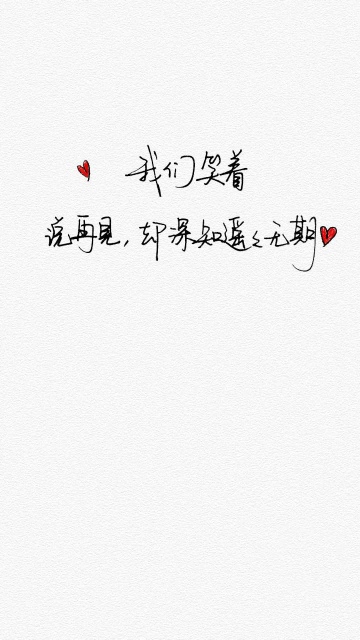 我们笑着
说再见，却深知遥遥无期